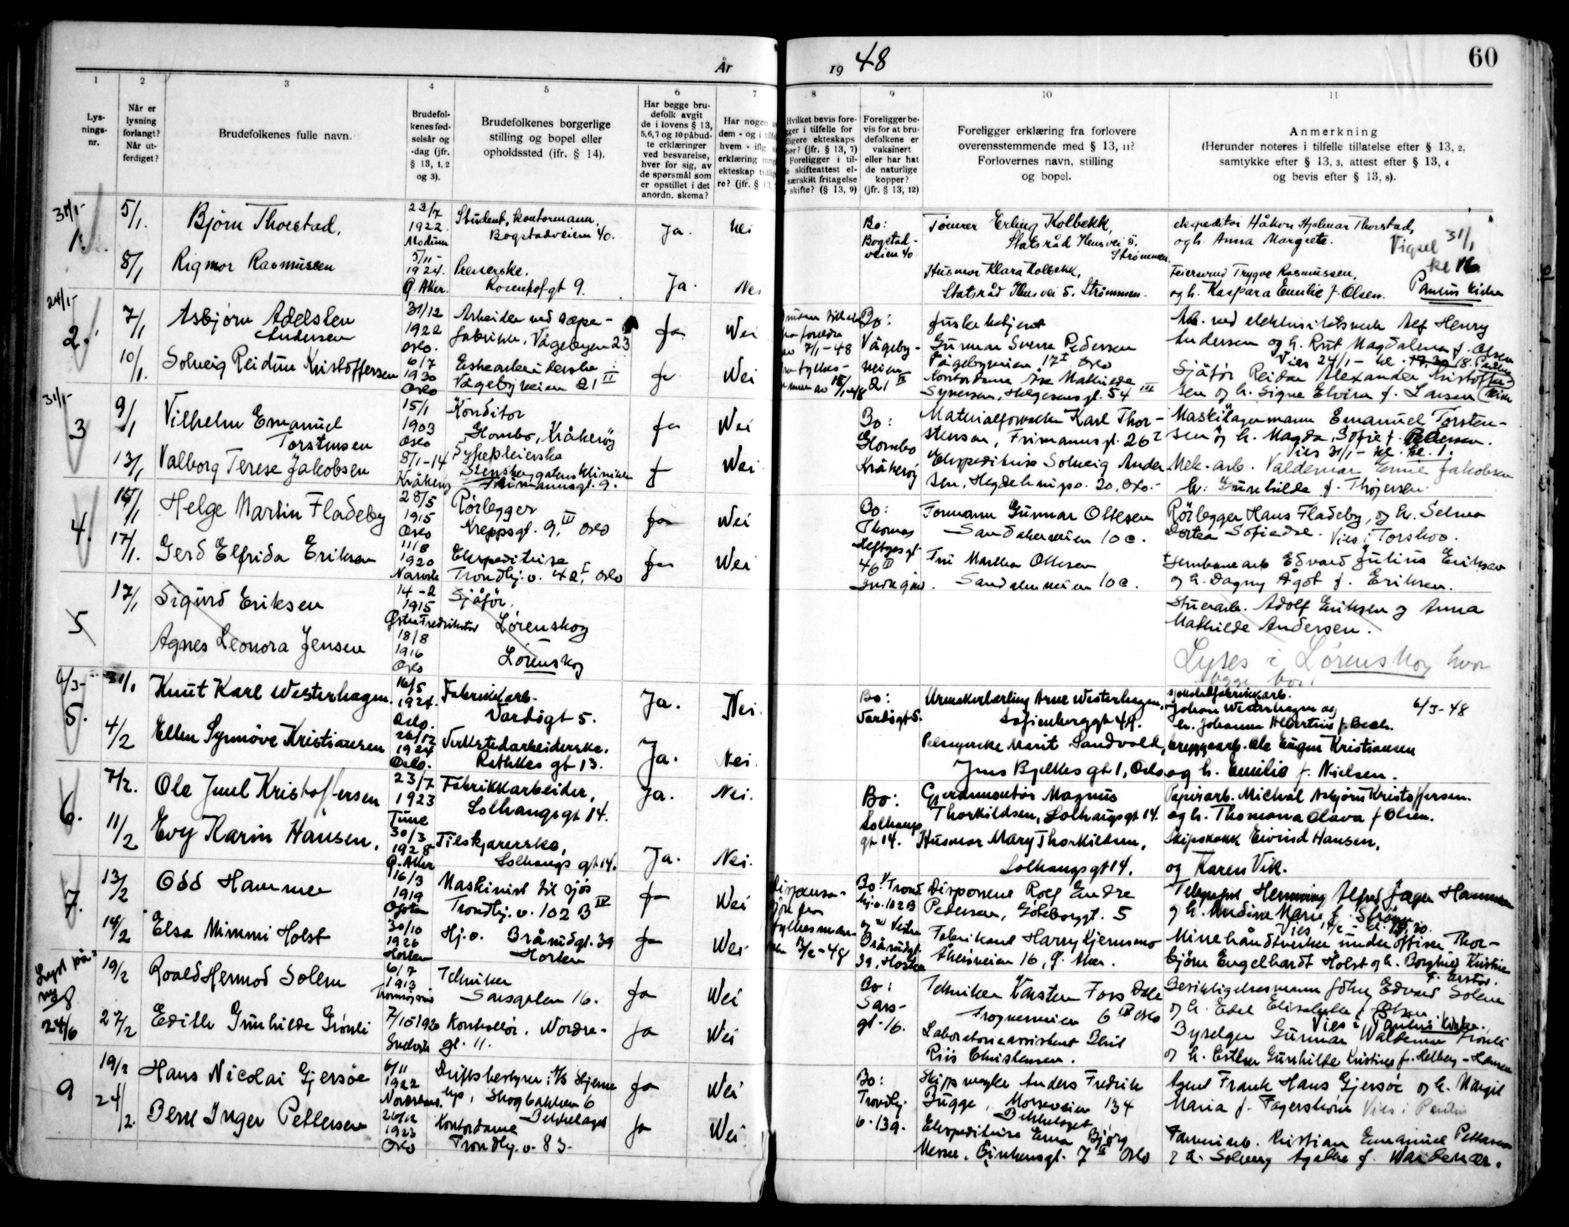 År 19 48
60
1 2 3 4 5 6 7 8 9 10 11
Lys-
nings-
nr.
Når er
lysning
forlangt?
Når ut-
ferdiget?
Brudefolkenes fulle navn.
Brudefol-
kenes fød-
selsår og
-dag (jfr.
§ 13, 1, 2
og 3).
Brudefolkenes borgerlige
stilling og bopel eller
opholdssted (ifr. § 14).
Har begge bru-
defolk avgit
de i lovens § 13,
5,6,7 og 10 påbud-
te erklæringer
ved besvarelse,
hver for sig, av
de spørsmål som
er opstillet i det
anordn. skema?
Har nogen
dem - og i
hvem - iflg.
erklæring
ekteskap
re? (jfr. § 13,
Hvilket bevis fore-
ligger i tilfelle for
ekteskaps
§ 13, 7)
Foreligger i til-
skifteattest el-
særskilt fritagelse
skifte? (§ 13, 9)
Foreligger be-
vis for at bru-
defolkene er
vaksinert
eller har hat
de naturlige
kopper?
(jfr. § 13, 12)
Foreligger erklæring fra forlovere
overensstemmende med § 13, 11?
Forlovernes navn, stilling
og bopel.
Anmerkning
(Herunder noteres i tilfelle tillatelse efter § 13, 2,
samtykke efter § 13, 3, attest efter § 13, 4
og bevis efter § 13, 8).
31/1-
1.
5/1.
Bjørn Thorstad.
23/7
1922
Modum
Student, kontormann,
Bogstadveien 40.
Ja.
Nei
Bo:
Bogstad-
veien 40
Tømrer Erling Kolbekk,
Statsråd Ihlensvei 5.
Strømmen.
ekspeditør Håkon Hjalmar Thorstad,
og h. Anna Margrete.
Vigsel 31/1
kl 16
8/1.
Rigmor Rasmussen
5/11-
1924.
Ø. Aker.
Presserske.
Rosenhofgt 9.
Ja.
Nei
Husmor Klara Kolbekk,
Statsråd Ihlensvei 5. Strømmen.
Feiersvend Trygve Rasmussen,
og h. Kaspara Emilie f. Olsen.
Paulus kirke
24/1-
2.
7/1
Asbjørn Adelsten
Andersen
31/12
1922
Oslo.
Arbeider ved såpe-
fabrikk, Vågebyen 23
Ja
Nei
7/1-48
Bo:
Vågeby-
veien
21 II
Gunnar Sverre Pedersen
Vågebyveien 17 I Oslo
Arb. ved elektrisitetsverk Alf Henry
Andersen og h. Rut Magdalena f. Olsen
Vies 24/1 - kl.
10/1.
Solveig Reidun Kristoffersen
6/7
1930
Oslo
Eskearbeiderske
Vågebyveien 21 II
Ja
Nei
Kontordame Åse Mathilde
Syversen, Helgesensgt. 54 III
Sjåfør Reidar Alexander Kristoffer-
sen og h. Signe Elvira f. Larsen
31/1-
3
9/1
Vilhelm Emanuel
Torstensen
15/1
1903
Oslo
Konditor
Glombo, Kråkerøy
Ja
Nei
Bo:
Glombo
Kråkerøy
Materialforvalter Karl Thor-
stensen, Frimannsgt. 26 I
Maskinlagermann Emanuel Torsten-
sen og h. Magda, Sofie f. Pedersen.
Vies 31/1 - kl. 1.
13/1
Valborg Terese Jakobsen
8/1-14
Kråkerøy
Sykepleierske
Frimannsgt. 9.
Ja
Nei
Ekspeditrise Solveig Ander
sen, Hegdehaugsv. 20, Oslo.-
Mek. arb. Valdemar Emil Jakobsen
h. Gunhilda f. Thøgersen
4.
15/1
Helge Martin Fladeby
28/5
1915
Oslo
Rørlegger
Kreppsgt. 9, IV Oslo
Ja
Nei
Bo:
Thomas
Heftyesgt
46 II
Formann Gunnar Ottesen
Sandakerveien 10 c.
Rørlegger Hans Fladeby, og h. Selma
Dortea Sofiedse. Vies i Torshov.
17/1.
Gerd Elfrida Eriksen
11/8
1920
Narvik
Ekspeditrise
Trondhj. v. 42, I Oslo
Ja
Nei
Fru Martha Ottesen
Sandakerveien 10 c.
Jernbanearb Edvard Julius Eriksen
og h. Dagny Ågot f. Eriksen.
5
17/1
Sigurd Eriksen
14-2
1915
Østre Fredrikstad
Sjåfør.
Lørenskog
Stuerarb. Adolf Eriksen og Anna
Mathilde Andersen.
Agnes Leonora Jensen
18/8
1916
Oslo
Lørenskog
Lyses i Lørenskog hvor
begge bor.
6/3-
5.
31/1
Knut Karl Westerhagen
16/5
1924.
Oslo.
Fabrikkarb.
Vardøgt 5.
Ja.
Nei.
Bo:
Vardøgt 5.
Urmakerlærling Arne Westerhagen,
Sofienberggt 49.
sjokoladefabrikkarb.
Johan Westerhagen og
h. Johanna Albertine f. Bech.
6/3-48
4/2
Ellen Synnøve Kristiansen
26/12
1924
Oslo.
Verkstedarbeiderske.
Rathkes gt 13.
Ja.
Nei.
Pelssyerske Marit Sandvold,
Jens Bjelkes gt 1, Oslo
bryggearb. Ole Eugen Kristiansen
og h. Emilie f. Nielsen.
6.
7/2.
Ole Juul Kristoffersen
23/7
1923
Tune
Fabrikkarbeider,
Solhaugsgt 14.
Ja.
Nei.
Bo:
Solhaugs
gt 14.
Magnus
Thorkildsen, Solhaugsgt 14.
Papirarb. Michal Asbjørn Kristoffersen.
og h. Thomana Olava f Olsen.
11/2
Evy Karin Hansen.
30/3
1928
Ø. Aker
Tilskjærerske,
Solhaugs gt 14.
Ja.
Nei.
Husmor Mary Thorkildsen,
Solhaugsgt 14.
Skipskokk Eivind Hansen,
og Karen Vik.
7.
13/2
Odd Hammer
16/3
1919
Maskinist til sjøs
Trondhj. v. 102 B IV
Ja
Nei
Bo: Trond
hj. v. 102 B
og
Disponent Rolf Endre
Pedersen, Göteborggt. 5
Telegrafist Henning Alfred Jager Hammer
og h. Andine Marie f. Strøm
14/2
Elsa Mimmi Holst
30/10
1926
Horten
Hj. v. Brårudgt. 39
Horten
Ja
Nei
13/2-48
39, Horten
Fabrikant Harry Kjernsmo
16, Ø. Aker.
Minehåndtverker underoffiser Thor-
bjørn Engelhardt Holst og h. Borghild Kristine
Lyst på
ny
8
24/6
19/2
Roald Hermod Solem
6/7
1913
Tekniker
Sarsgaten 16.
Ja
Nei
Bo:
Sars-
gt. 16.
Tekniker Karsten Foss Dale
Trogneveien 6 Oslo
Beriktigelsesmann Johny Edvard Solem
og h. Edel Elisabeth f. Olsen.
Vies i Paulus kirke.
27/2
Edith Gunhilde Grønli
7/15 1920
Kontorist, Nordre-
gt. 11.
Ja
Nei
Laboratorieassistent Beril
Riis Christensen.
Byselger Gunnar Waldemar Grønli
og h. Esther Gunhilde Kristine f. Hellberg-Hansen
9
19/2
Hans Nicolai Gjersøe
6/11
1922
Driftsbestyrer i A/S Stjerne
Skogbakken 6
Bekkelaget
Ja
Nei
Bo:
Trondhj.
v. 139.
Skipsmegler Anders Fredrik
Bugge, Mosseveien 134
Bekkelaget
Agent Frank Hans Gjersøe og h. Margit
Maria f. Fagerstrøm Vies i Paulus
24/2.
Berit Inger Pettersen
26/12
1923
Oslo
Kontordame
Trondhj. v. 83.
Ja
Nei
Ekspeditrise Erna Bjørg
7 II Oslo
Kristian Emanuel Pettersen
og h. Solveig Agathe f. Waldenær.